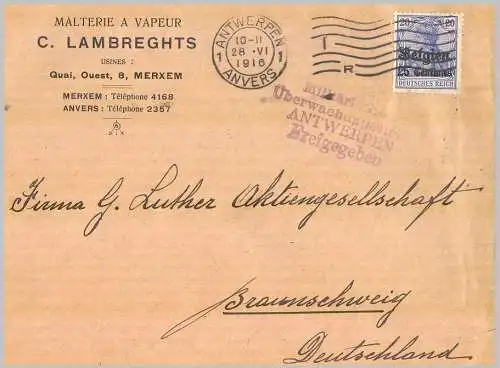 MALTERIE A VAPEUR
C. LAMBREGHTS
USINES :
Quai, Ouest, 8, MERXEM
MERXEM : Téléphone 4168
ANVERS : Téléphone 2357
ANTWERPEN
1 10-11 1
28 ·VI
1916
ANVERS
I
R
20 20
Belgien
25 Centimes
DEUTSCHES REICH
Überwachungsstelle
ANTWERPEN
Freigegeben
Firma G. Luther Aktiengesellschaft
Braunschweig
Deutschland